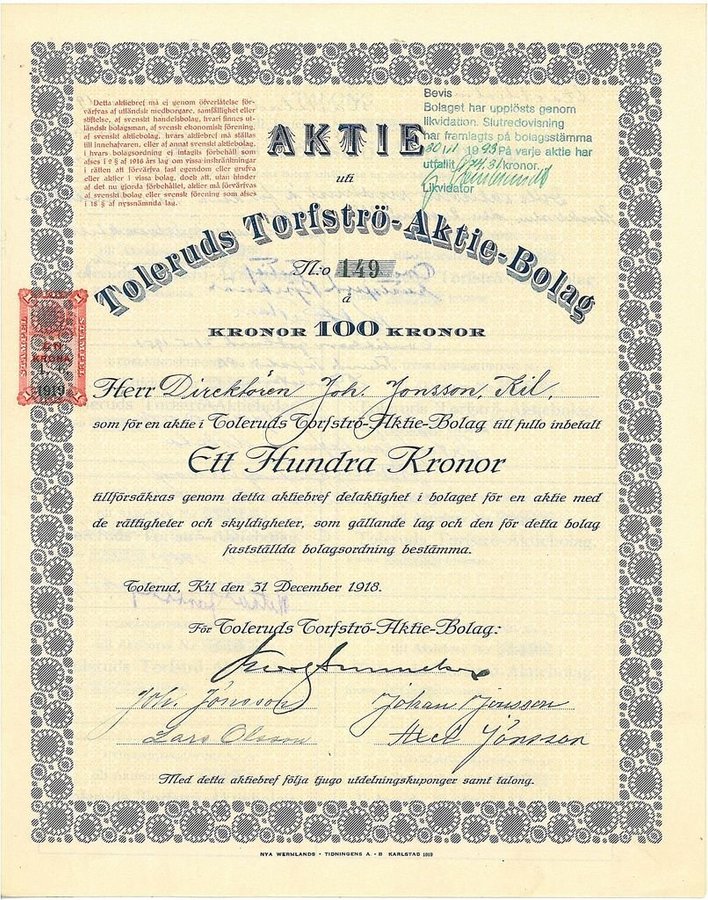 Detta aktiebref må ej genom öfverlåtelse för-
värfvas af utländsk medborgare, samfällighet eller
stiftelse, af svenskt handelsbolag, hvari finnes ut-
ländsk bolagsman, af svensk ekonomisk förening,
af svenskt aktiebolag, hvars aktiebref må ställas
till innehafvaren, eller af annat svenskt aktiebolag,
i hvars bolagsordning ej intagits förbehåll som
afses i 2 § af 1916 års lag om vissa inskränkningar
i rätten att förvärfva fast egendom eller grufva
eller aktier i vissa bolag, doch att, utan hinder
af det nu gjorda förbehållet, aktier må förvärfvas
af svenskt bolag eller svensk förening som afses
i 18 § af nyssnämnda lag.
Bevis
Bolaget har upplösts genom
likvidation. Slutredovisning
har framlagts på bolagsstämma
19 På varje aktie har
utfallit kronor.
Likvidator
AKTIE
uti
Toleruds Torfströ-Aktie-Bolag
N:o 149
à
KRONOR 100 KRONOR
STÄMPEL
EN
KRONA
1919
Herr Direktören Joh. Jonsson, Kil,
som för en aktie i Toleruds Torfströ-Aktie-Bolag till fullo inbetalt
Ett Hundra Kronor
tillförsäkras genom detta aktiebref delaktighet i bolaget för en aktie med
de rättigheter och skyldigheter, som gällande lag och den för detta bolag
fastställda bolagsordning bestämma.
Tolerud, Kil den 31 December 1918.
För Toleruds Torfströ-Aktie-Bolag:
Joh. Jonsson Johan Jonsson
Lars Olsson Axel Jonsson
Med detta aktiebref följa tjugo utdelningskuponger samt talong.
NYA WERMLANDS - TIDNINGENS A. - B KARLSTAD 1919